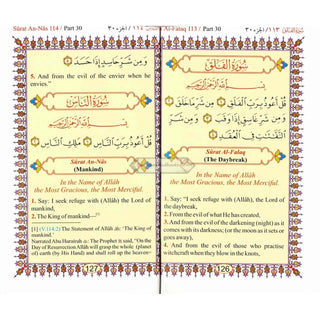 Sûrat An-Nâs 114 / Part 30
الجزء ٣٠ / ١١٤
وَمِن شَرِّ حَاسِدٍ إِذَا حَسَدَ
5. And from the evil of the envier when he
envies."
سُورَةُ النَّاسِ
بِسْمِ اللَّهِ الرَّحْمَٰنِ الرَّحِيمِ
قُلْ أَعُوذُ بِرَبِّ النَّاسِ مَلِكِ النَّاسِ
Sûrat An-Nâs
(Mankind)
In the Name of Allâh
the Most Gracious, the Most Merciful.
1. Say: "I seek refuge with (Allâh), the Lord of
mankind,
2. The King of mankind—[1]
[1] (V.114:2) The Statement of Allâh: "The King of
mankind."
Narrated Abu Hurairah: The Prophet said, "On the
Day of Resurrection Allâh will grasp the whole (planet
of) earth (by His Hand) and shall roll up the heaven-
127
Al-Falaq 113 / Part 30
الجزء ٣٠ / ١١٣
سُورَةُ الْفَلَقِ
بِسْمِ اللَّهِ الرَّحْمَٰنِ الرَّحِيمِ
قُلْ أَعُوذُ بِرَبِّ الْفَلَقِ مِن شَرِّ مَا خَلَقَ
وَمِن شَرِّ غَاسِقٍ إِذَا وَقَبَ وَمِن شَرِّ
النَّفَّاثَاتِ فِي الْعُقَدِ
Sûrat Al-Falaq
(The Daybreak)
In the Name of Allâh
the Most Gracious, the Most Merciful.
1. Say: "I seek refuge with (Allâh), the Lord of the
daybreak,
2. From the evil of what He has created,
3. And from the evil of the darkening (night) as it
comes with its darkness; (or the moon as it sets or
goes away),
4. And from the evil of those who practise
witchcraft when they blow in the knots,
126